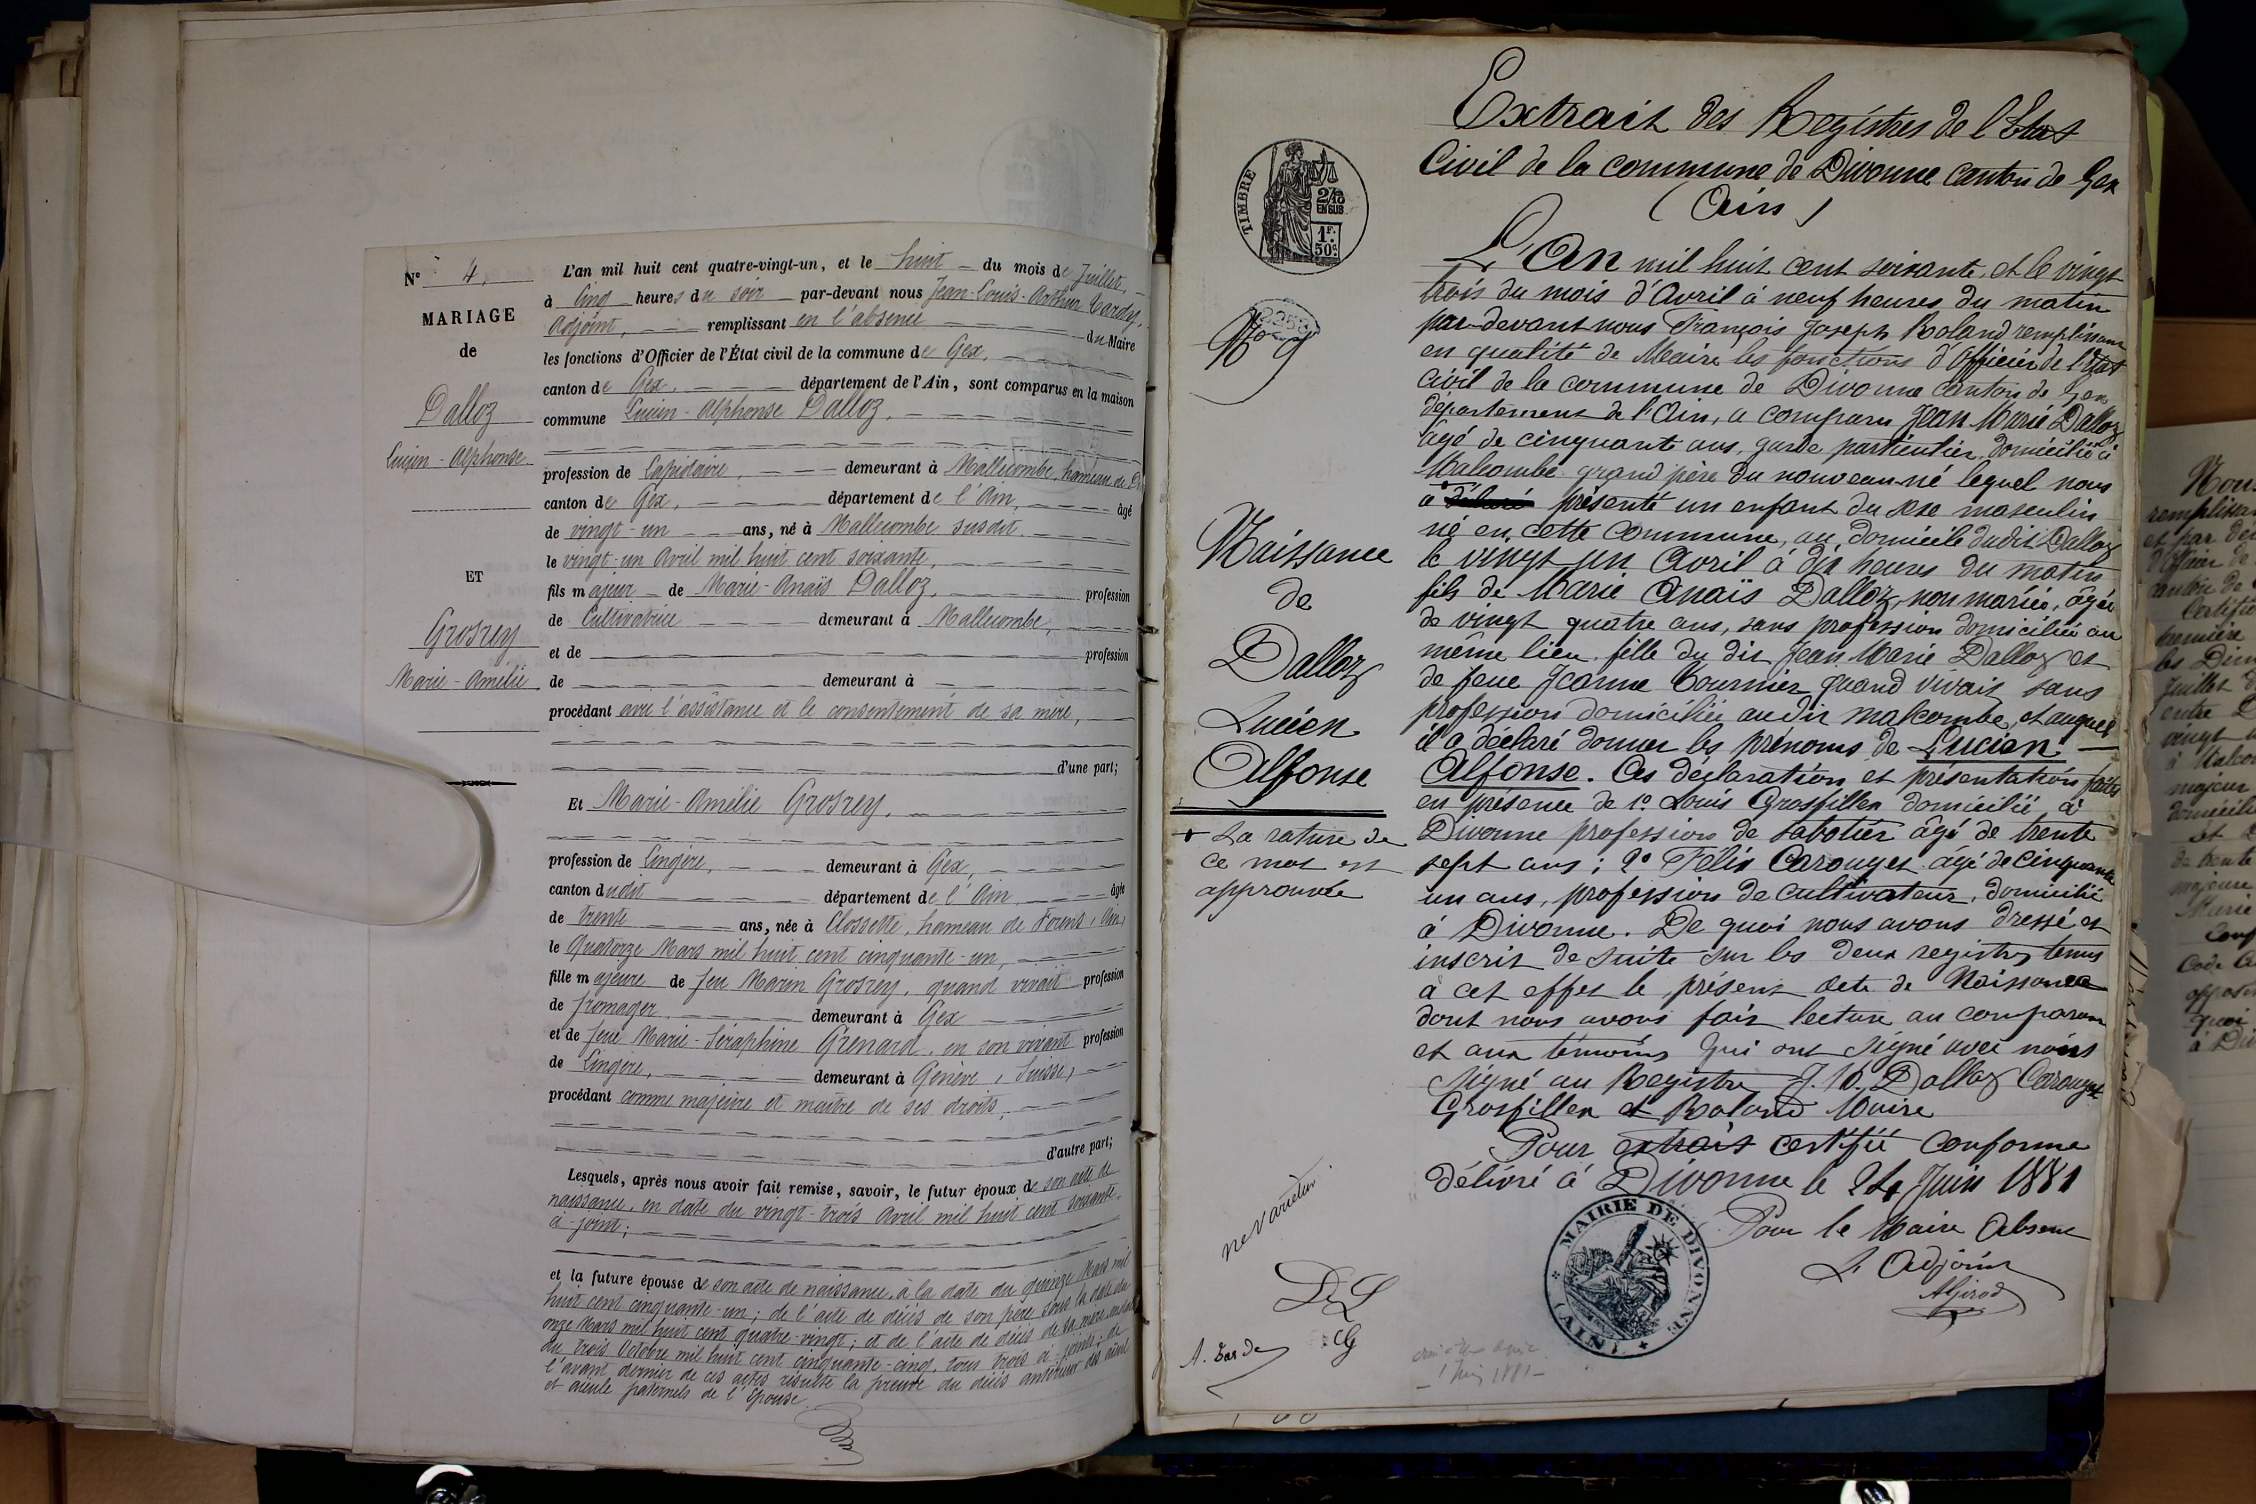 N° 4.
MARIAGE
de
Dalloz
Lucien-Alphonse
ET
Grosrey
Marie-Amélie
L'an mil huit cent quatre-vingt-un, et le huit du mois de Juillet,
à cinq heures du soir par-devant nous Jean-Louis-Arthur Tardy,
Adjoint, remplissant en l'absence du Maire
les fonctions d'Officier de l'État civil de la commune de Gex,
canton de Gex, département de l'Ain, sont comparus en la maison
commune Lucien-Alphonse Dalloz,
profession de Lapidaire, demeurant à Mallecombe, hameau de
canton de Gex, département de l'Ain, âgé
de vingt-un ans, né à Mallecombe susdit
le vingt-un Avril mil huit cent soixante,
fils majeur de Marie-Anaïs Dalloz, profession
de Cultivatrice demeurant à Mallecombe,
et de profession
de demeurant à
procédant avec l'assistance et le consentement de sa mère,
d'une part;
Et Marie-Amélie Grosrey,
profession de Lingère, demeurant à Gex,
canton dudit département de l'Ain âgée
de trente ans, née à Clossette, hameau de Forens, Ain,
le Quatorze Mars mil huit cent cinquante-un,
fille majeure de feu Marin Grosrey, quand vivait profession
de fromager demeurant à Gex
et de feue Marie-Séraphine Grenard, en son vivant profession
de Lingère, demeurant à Genève, Suisse,
procédant comme majeure et maître de ses droits,
d'autre part;
Lesquels, après nous avoir fait remise, savoir, le futur époux de son acte de
naissance, en date du vingt-trois Avril mil huit cent soixante,
ci-joint;
et la future épouse de son acte de naissance, à la date du quinze Mars mil
huit cent cinquante-un; de l'acte de décès de son père sous la date du
onze Mars mil huit cent quatre-vingt; et de l'acte de décès de sa mère, en date
du trois Octobre mil huit cent cinquante-cinq, tous trois ci-joints; de
l'avant dernier de ces actes résulte la preuve du décès antérieur des aïeul
et aïeule paternels de l'épouse.
Extrait des Registres de l'Etat
Civil de la commune de Divonne canton de Gex
(Ain)
TIMBRE
2/10
EN SUS
1F.
50c.
No 9
L'An mil huit cent soixante, et le vingt
trois du mois d'Avril à neuf heures du matin
par-devant nous François Joseph Roland remplissant
en qualité de Maire les fonctions d'Officier de l'Etat
civil de la commune de Divonne canton de Gex
département de l'Ain, a comparu Jean Marie Dalloz
âgé de cinquante ans, garde particulier, domicilié à
Malcombe grand père du nouveau-né lequel nous
a déclaré présenté un enfant du sexe masculin
né en cette commune, au domicile dudit Dalloz
le vingt un Avril à dix heures du matin
fils de Marie Anaïs Dalloz, non mariée, âgée
de vingt quatre ans, sans profession domiciliée au
même lieu, fille du dit Jean Marie Dalloz et
de feue Jeanne Tournier quand vivait sans
profession domiciliée audit Malcombe, et auquel
il a déclaré donner les prénoms de Lucien
Alfonse. Ces déclaration et présentation faites
en présence de 1° Louis Grosfillex domicilié à
Divonne profession de sabotier âgé de trente
sept ans; 2° Félix Carouget âgé de cinquante
un ans, profession de cultivateur, domicilié
à Divonne. De quoi nous avons dressé et
inscrit de suite sur les deux registres tenus
à cet effet le présent acte de Naissance
dont nous avons fait lecture au comparant
et aux témoins qui ont signé avec nous
signé au Registre J. M. Dalloz Carouget
Grosfillex et Roland Maire
Pour extrait certifié conforme
Délivré à Divonne le 24 Juin 1881
Pour le Maire Absent
L'Adjoint
AGirod
MAIRIE DE DIVONNE
(AIN)
Naissance
de
Dalloz
Lucien
Alfonse
+ La rature de
ce mot est
approuvée
ne varietur
D L
G
A. Tardy